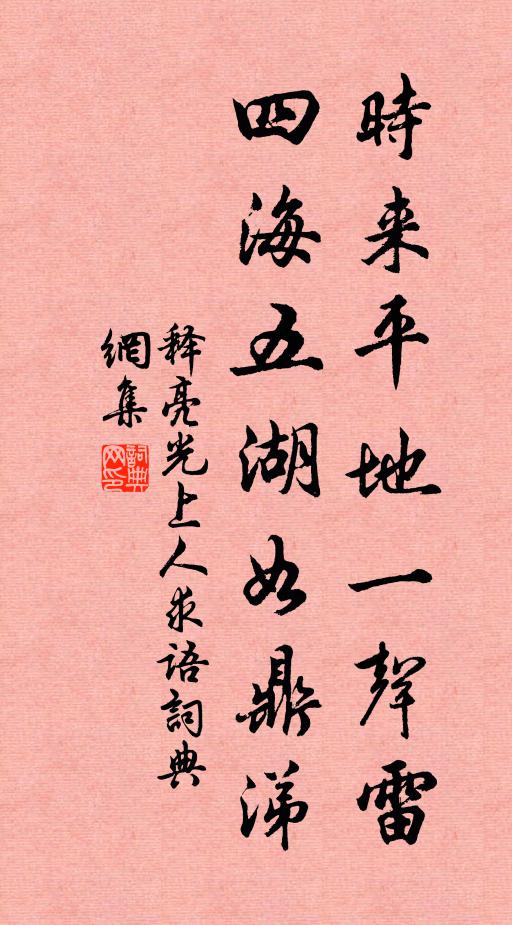 時来平地一聲雷
四海五湖如鼎涕
释亮光上人求語詞典
網集
詞典
网印